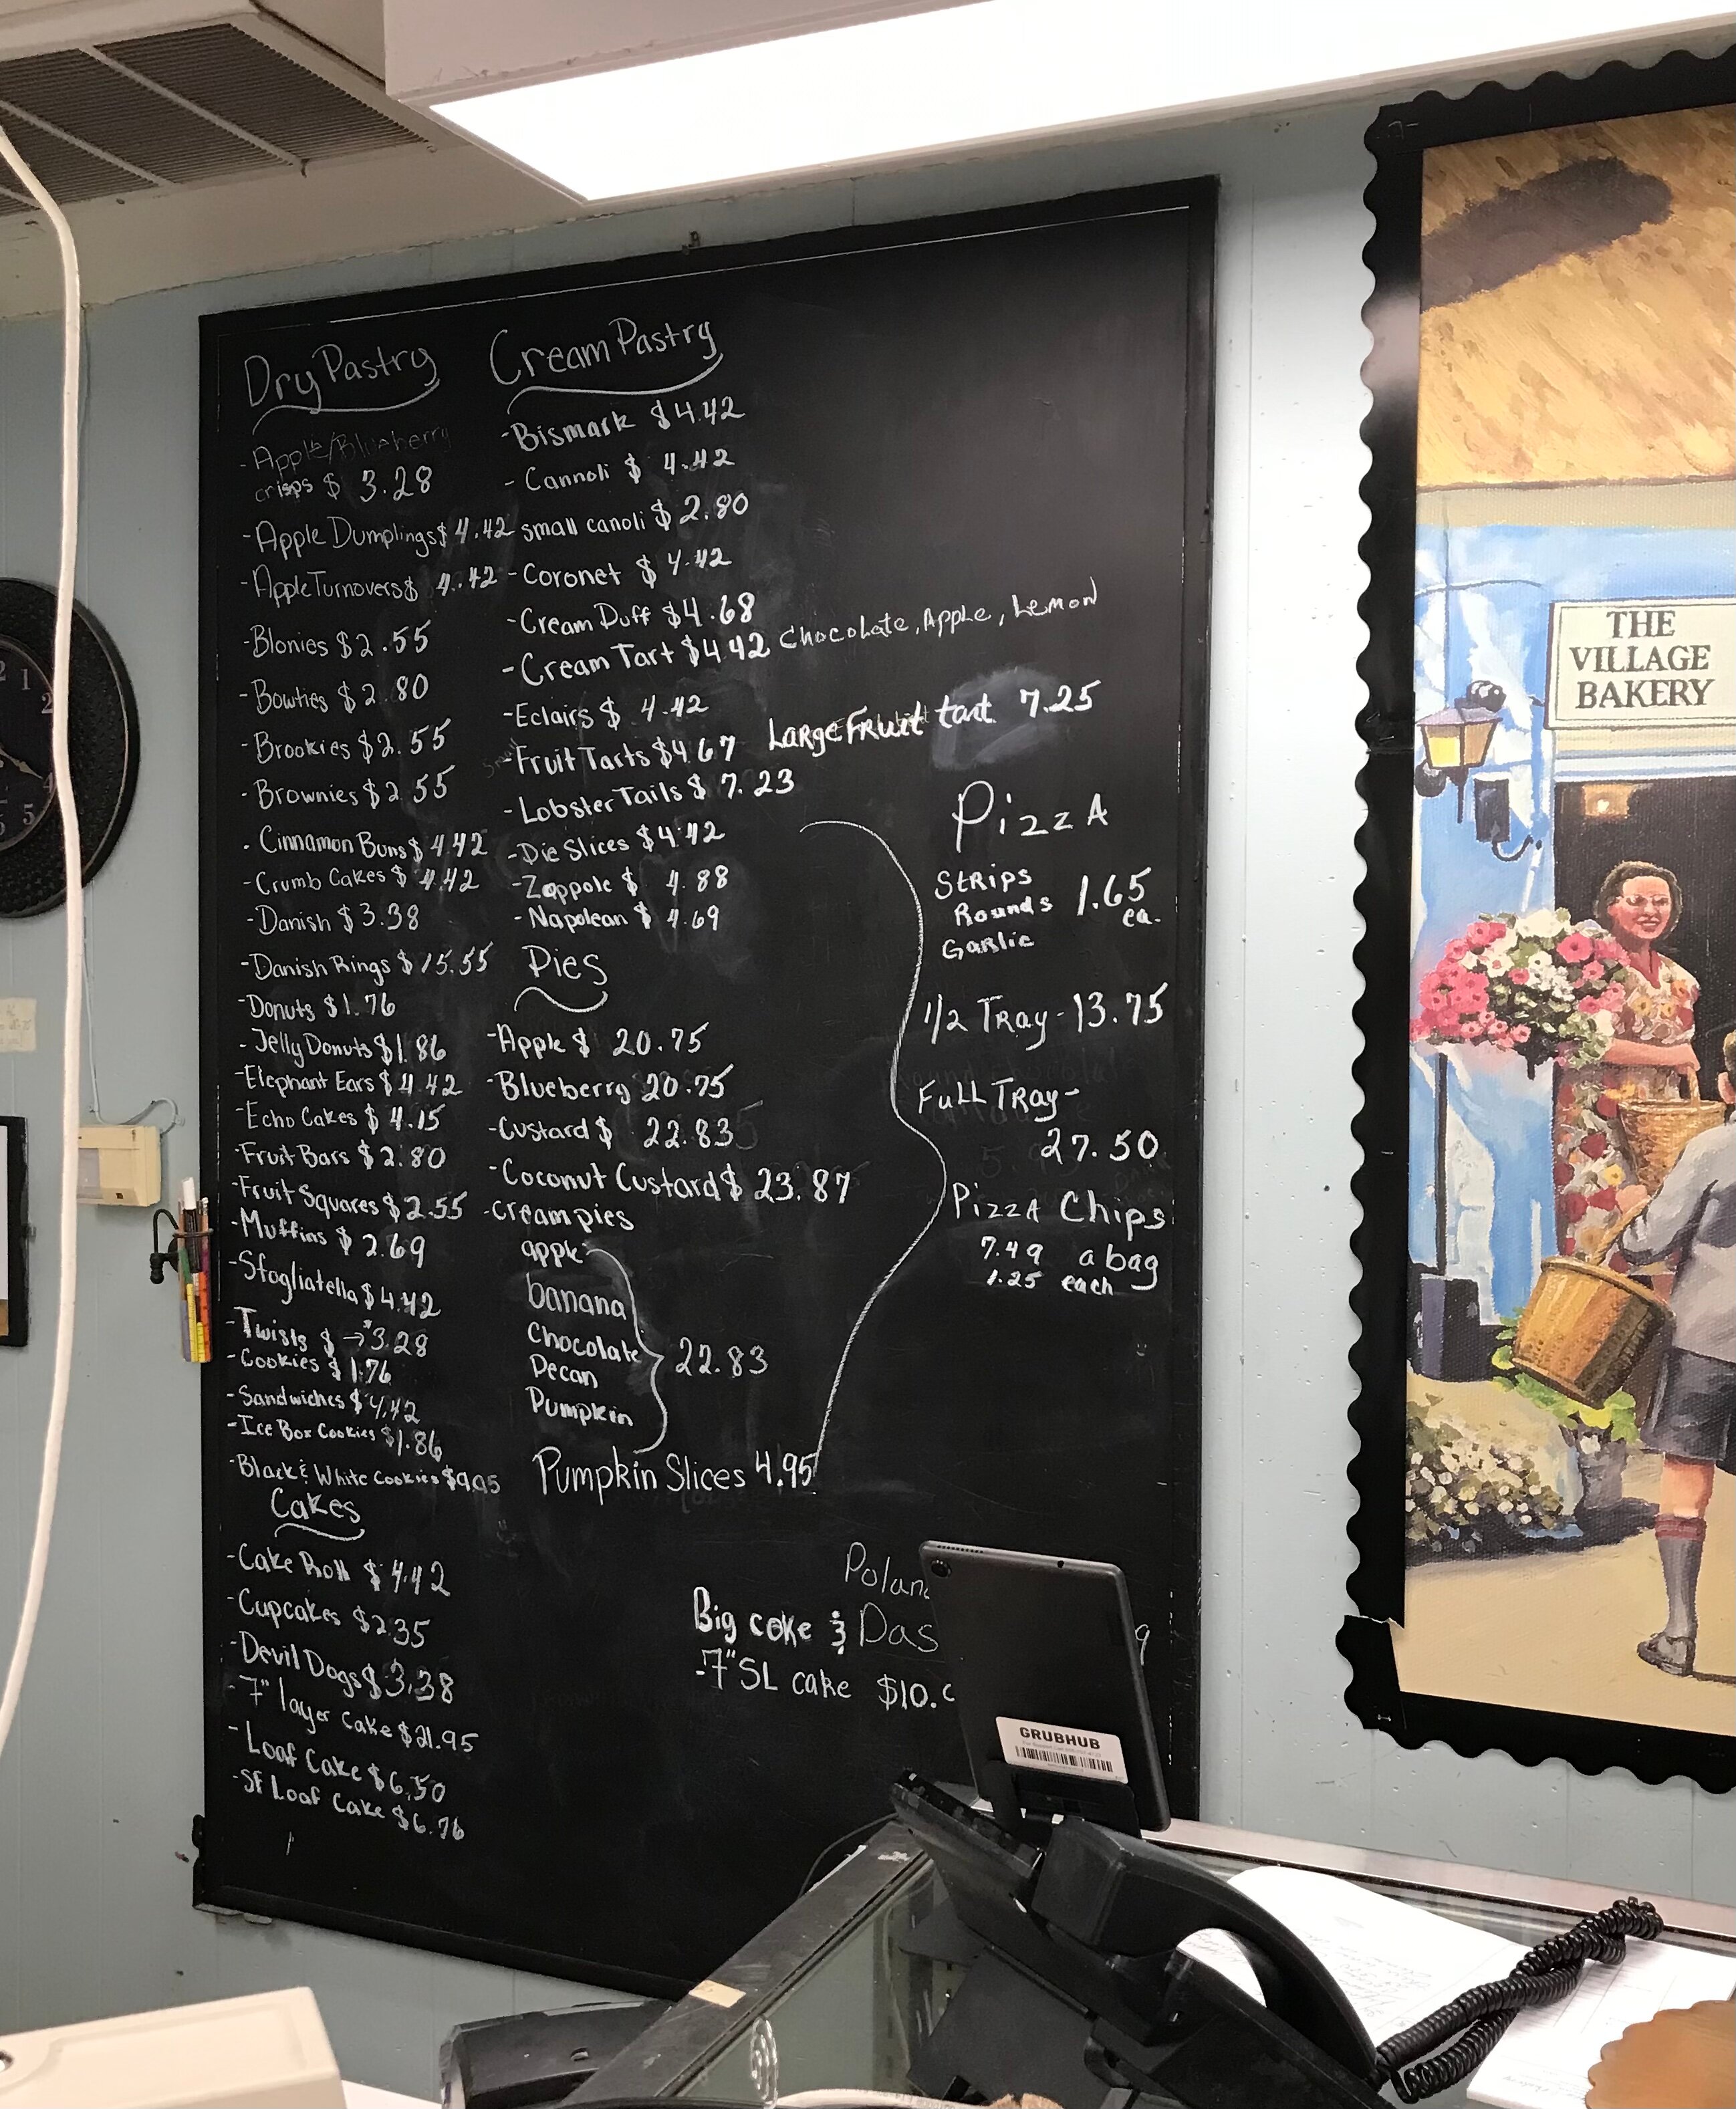 Dry Pastry
- Apple/Blueberry
crisps $ 3.28
- Apple Dumplings $ 4.42
- Apple Turnovers $ 4.42
- Blonies $2.55
- Bowties $2.80
- Brookies $2.55
- Brownies $2.55
- Cinnamon Buns $4.42
- Crumb Cakes $4.42
- Danish $3.38
- Danish Rings $15.55
- Donuts $1.76
- Jelly Donuts $1.86
- Elephant Ears $4.42
- Echo Cakes $4.15
- Fruit Bars $2.80
- Fruit Squares $2.55
- Muffins $2.69
- Sfogliatella $4.42
- Twists $ → 3.28
- Cookies $1.76
- Sandwiches $4.42
- Ice Box Cookies $1.86
- Black & White Cookies
Cakes
- Cake Roll $4.42
- Cupcakes $2.35
- Devil Dogs $3.38
- 7" layer Cake $21.95
- Loaf Cake $6.50
- SF Loaf Cake $6.76
Cream Pastry
- Bismark $4.42
- Cannoli $ 4.42
small canoli $2.80
- Coronet $ 4.42
- Cream Duff $4.68
- Cream Tart $4.42 Chocolate, Apple, Lemon
- Eclairs $ 4.42
- Fruit Tarts $4.67 Large Fruit tart 7.25
- Lobster Tails $ 7.23
- Die Slices $4.42
- Zoppole $ 4.88
- Napolean $ 4.69
Pies
- Apple $ 20.75
- Blueberry 20.75
- Custard $ 22.83
- Coconut Custard $ 23.87
- cream pies
apple
banana
Chocolate
Pecan
Pumpkin
22.83
Pumpkin Slices 4.95
Pizza
Strips
Rounds
Garlic
1.65
ea.
1/2 Tray - 13.75
Full Tray -
27.50
Pizza Chips
7.49 a bag
1.25 each
Big coke &
- 7" SL cake $10.
GRUBHUB
THE
VILLAGE
BAKERY
1
2
4
5